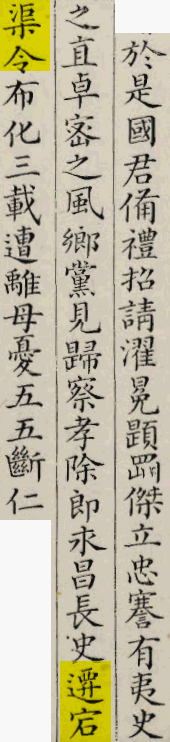 於是國君備禮招請濯冕題罰傑立忠謇有夷史
之直卓宻之風鄉黨見歸察孝除郎永昌長史遷宕
渠令布化三載遭離母憂五五斷仁